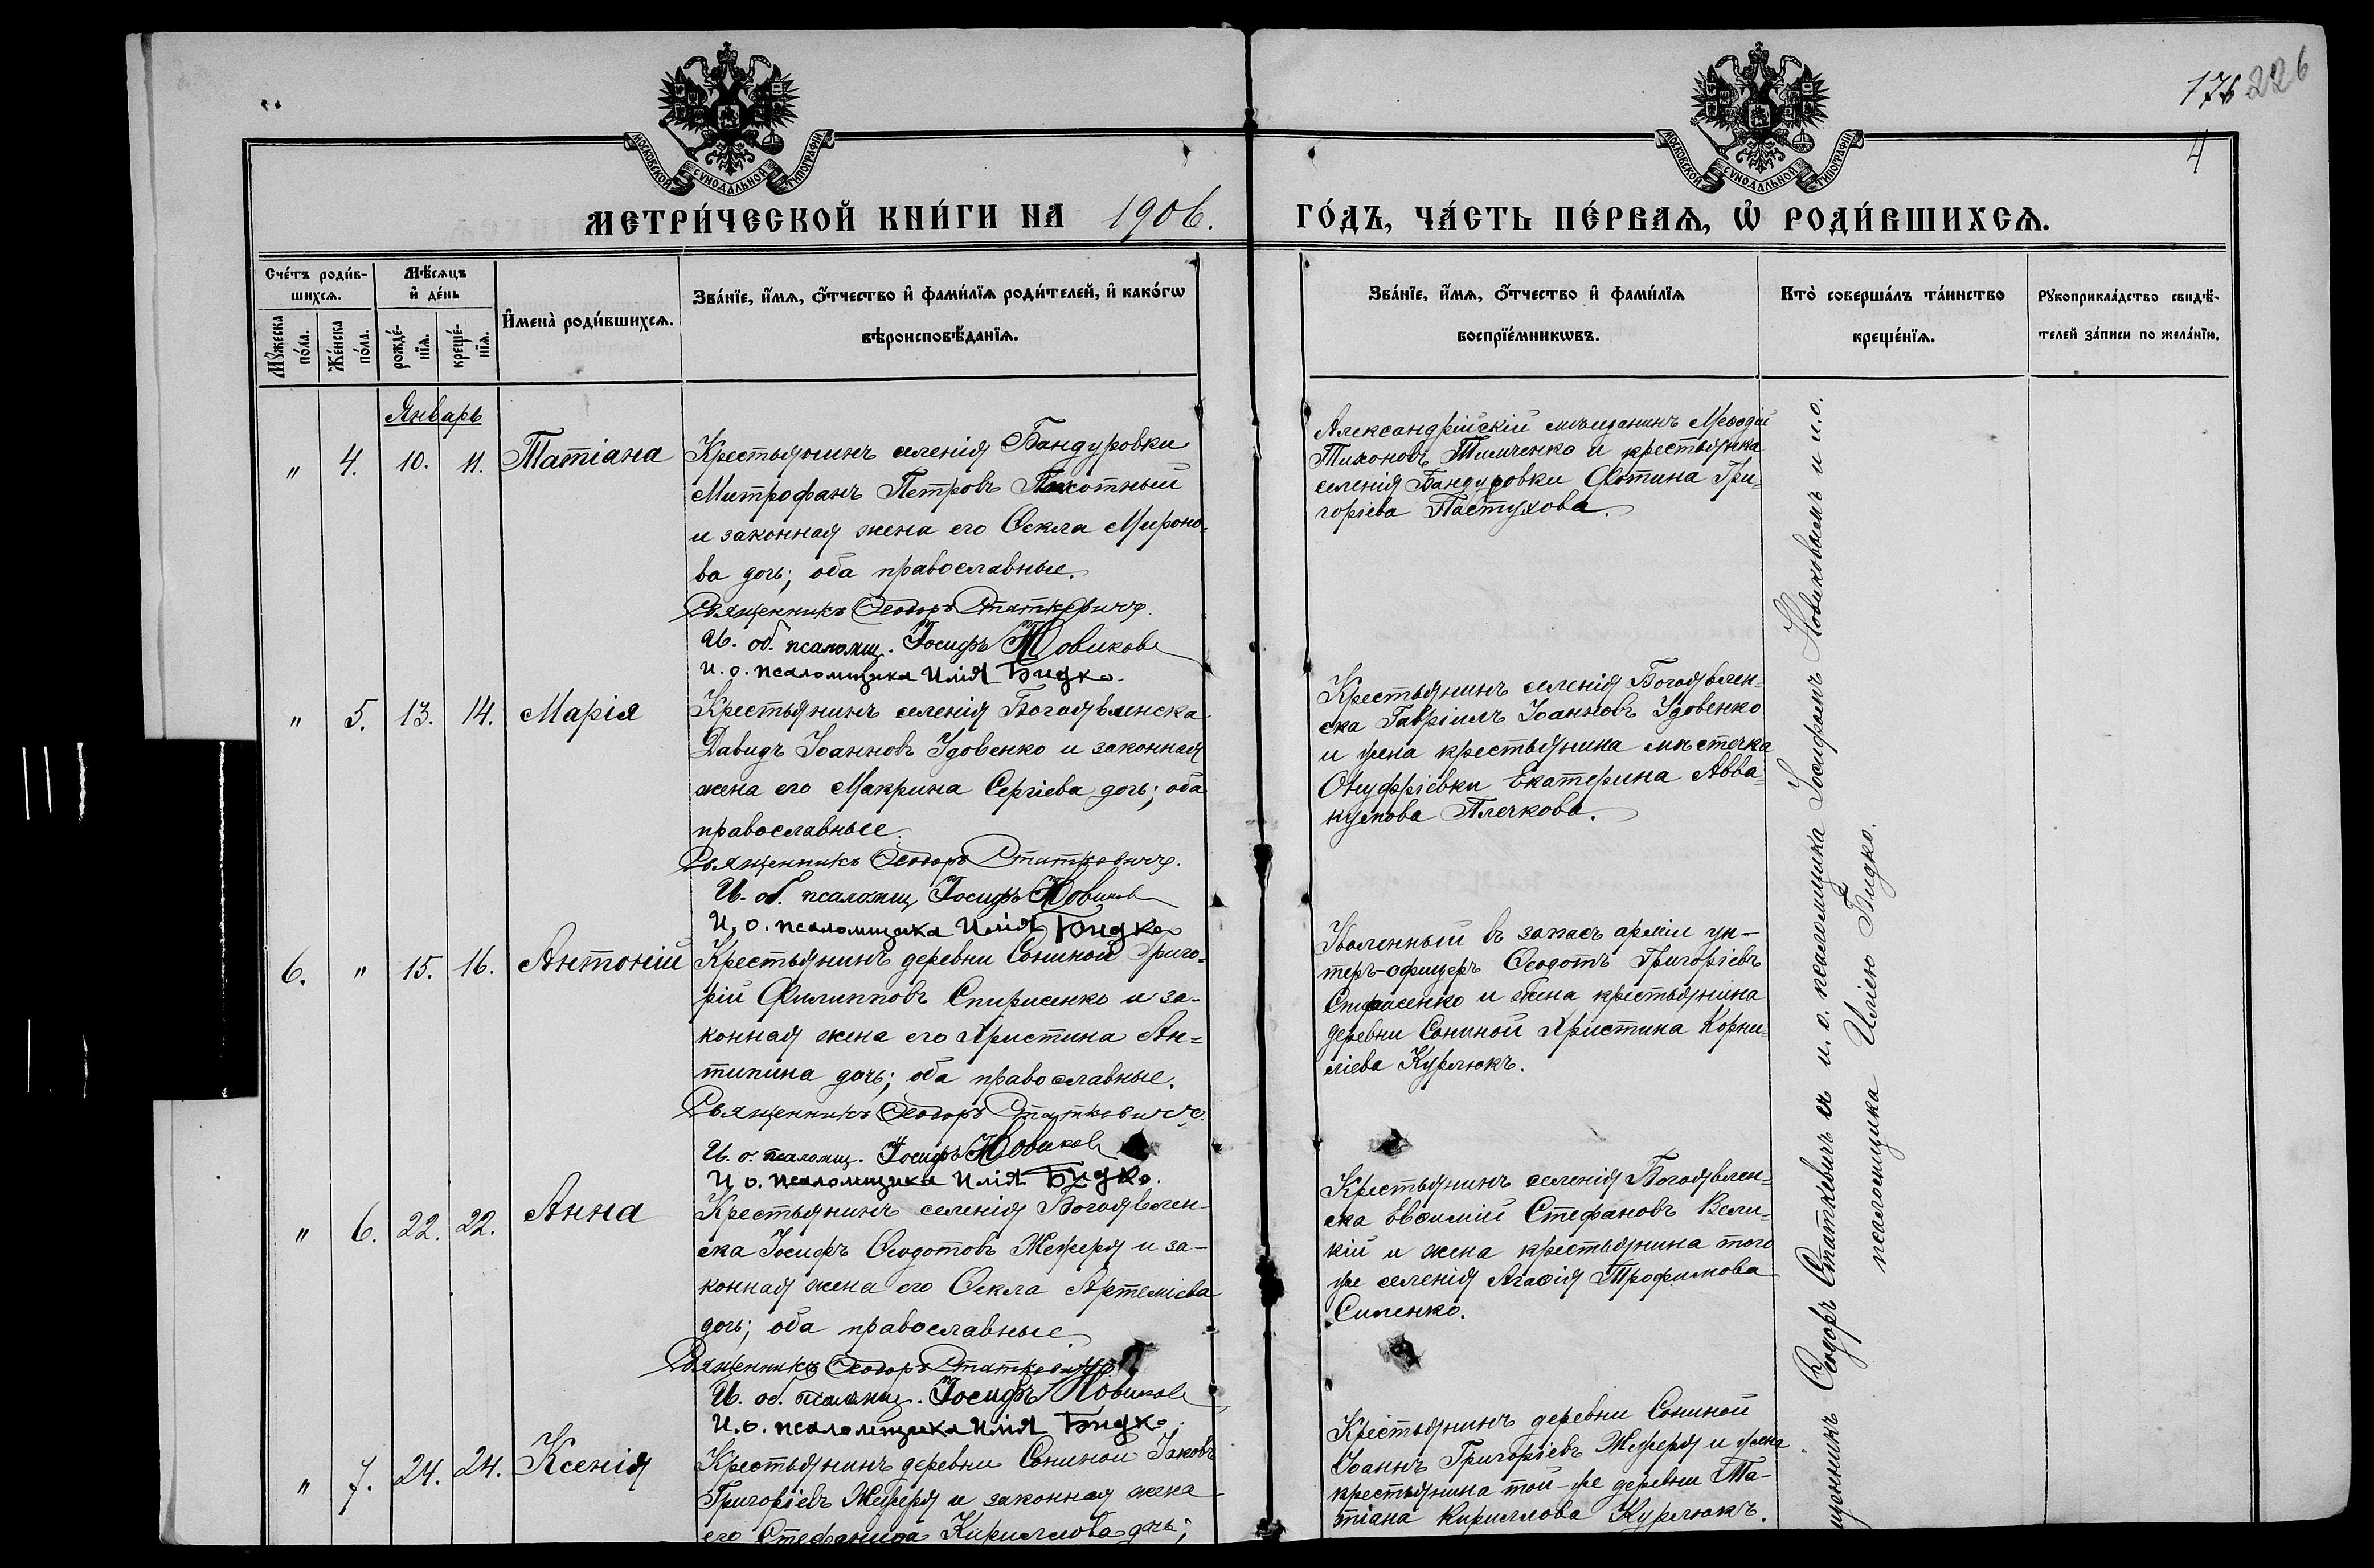 176 226
4
МОСКОВСКОЙ СѴНОДАЛЬНОЙ ТИПОГРАФІИ
МОСКОВСКОЙ СѴНОДАЛЬНОЙ ТИПОГРАФІИ
МЕТРИ́ЧЕСКОЙ КНИ́ГИ НА 1906. ГО́ДЪ, ЧА́СТЬ ПЕ́РВАѦ, Ѡ҆ РОДИ́ВШИХСѦ.
Сче́тъ роди́в-
шихсѧ.
Мꙋ́жеска
по́ла.
Же́нска
по́ла.
Мѣ́сѧцъ
и҆ де́нь
рожде́-
нїѧ.
креще́-
нїѧ.
И҆мена̀ роди́вшихсѧ.
Зва́нїе, и҆́мѧ, ѻ҆́тчество и҆ фами́лїѧ роди́телей, и҆ како́гѡ
вѣроисповѣ́данїѧ.
Зва́нїе, и҆́мѧ, ѻ҆́тчество и҆ фами́лїѧ
воспрїе́мникѡвъ.
Кто̀ соверша́лъ та́инство
креще́нїѧ.
Рꙋкоприкла́дство свидѣ́-
телей за́писи по жела́нїю.
Январь
" 4. 10. 11. Татіана
Крестьянинъ селенія Бандуровки
Митрофанъ Петровъ Пехотный
и законная жена его Ѳекла Мироно-
ва дочь; оба православные.
Священникъ Ѳеодоръ Статкевичъ.
И. об. псаломщ. Іосифъ Новиковъ
И. о. псаломщика Илія Бидко.
Александрійскій мѣщанинъ Меѳодій
Тихоновъ Тимченко и крестьянка
селенія Бандуровки Фотина Гри-
горіева Пастухова.
" 5. 13. 14. Марія
Крестьянинъ селенія Богоявленска
Давидъ Іоанновъ Удовенко и законная
жена его Макрина Сергіева дочь; оба
православные.
Священникъ Ѳеодоръ Статкевичъ.
И. об. псаломщ Іосифъ Новиковъ
И. о. псаломщика Илія Бидко
Крестьянинъ селенія Богоявлен-
ска Гавріилъ Іоанновъ Удовенко
и жена крестьянина мѣстечка
Онуфріевки Екатерина Авва-
кумова Плечкова.
6. " 15. 16. Антоній
Крестьянинъ деревни Сониной Григо-
рій Филипповъ Спирисенко и за-
конная жена его Христина Ан-
типина дочь; оба православные.
Священникъ Ѳеодоръ Статкевичъ.
И. о. псаломщ. Іосифъ Новиковъ
И о. псаломщика Илія Бидко.
Уволенный въ запасъ арміи ун-
теръ-офицеръ Ѳеодотъ Григоріевъ
Спирисенко и жена крестьянина
деревни Сониной Христина Корни-
ліева Курлюкъ.
" 6. 22. 22. Анна
Крестьянинъ селенія Богоявлен-
ска Іосифъ Ѳеодотовъ Жежеря и за-
конная жена его Ѳекла Артеміева
дочь; оба православные
Священникъ Ѳеодоръ Статкевичъ
И. об. псаломщ. Іосифъ Новиковъ
И. о. псаломщика Илія Бидко.
Крестьянинъ селенія Богоявлен-
ска Евѳимій Стефановъ Вели-
кій и жена крестьянина того
же селенія Агаѳія Трофимова
Силенко.
" 7. 24. 24. Ксенія
Крестьянинъ деревни Сониной Іаковъ
Григоріевъ Жежеря и законная жена
его Стефанида Кириллова дочь;
Крестьянинъ деревни Сониной
Іоаннъ Григоріевъ Жежеря и жена
крестьянина той-же деревни Та-
тіана Кириллова Курлюкъ.
щенникъ Ѳеодоръ Статкевичъ съ и. о. псаломщика Іосифомъ Новиковымъ и и. о.
псаломщика Иліею Бидко.